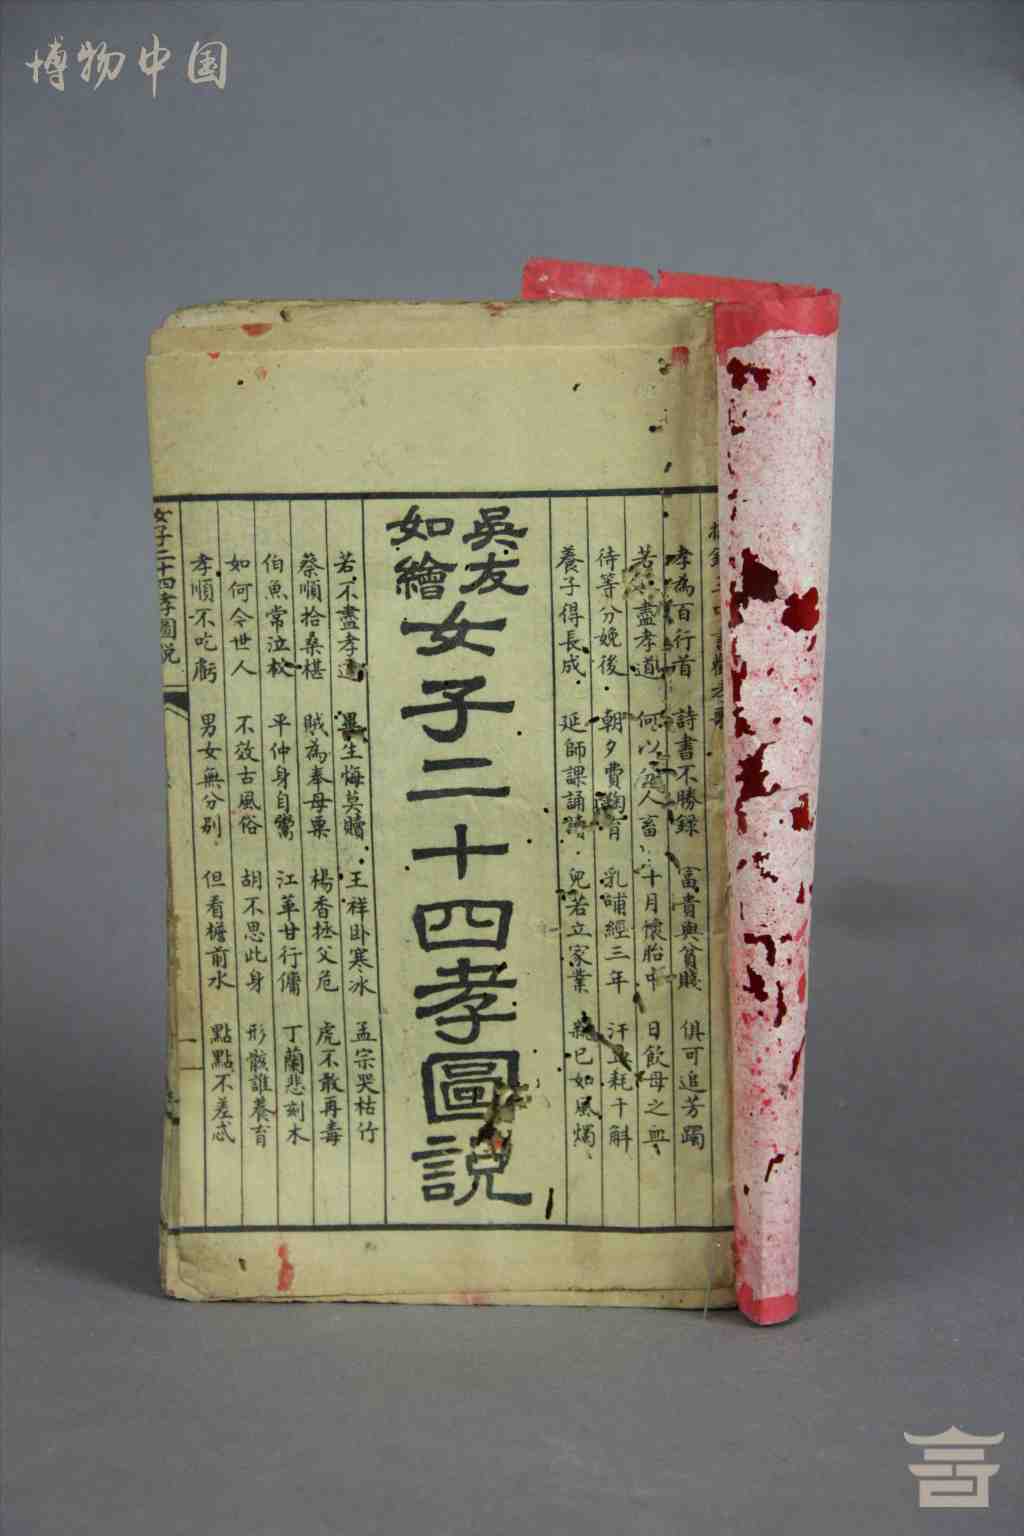 博物中国
孝為百行首 詩書不勝錄 富貴與貧賤 俱可追芳躅
若不盡孝道 何以分人畜 十月懷胎中 日飲母之血
待等分娩後 朝夕費鞠育 乳哺經三年 汗血耗千斛
養子得長成 延師課誦讀 兒若立家業 親已如風燭
吳友
如繪
女子二十四孝圖說
若不盡孝道 畢生悔莫贖 王祥臥寒冰 孟宗哭枯竹
蔡順拾桑椹 賊為奉母粟 楊香拯父危 虎不敢再毒
伯魚常泣杖 平仲身自鬻 江革甘行傭 丁蘭悲刻木
如何今世人 不效古風俗 胡不思此身 形骸誰養育
孝順不吃虧 男女無分別 但看檐前水 點點不差忒
女子二十四孝圖說
一